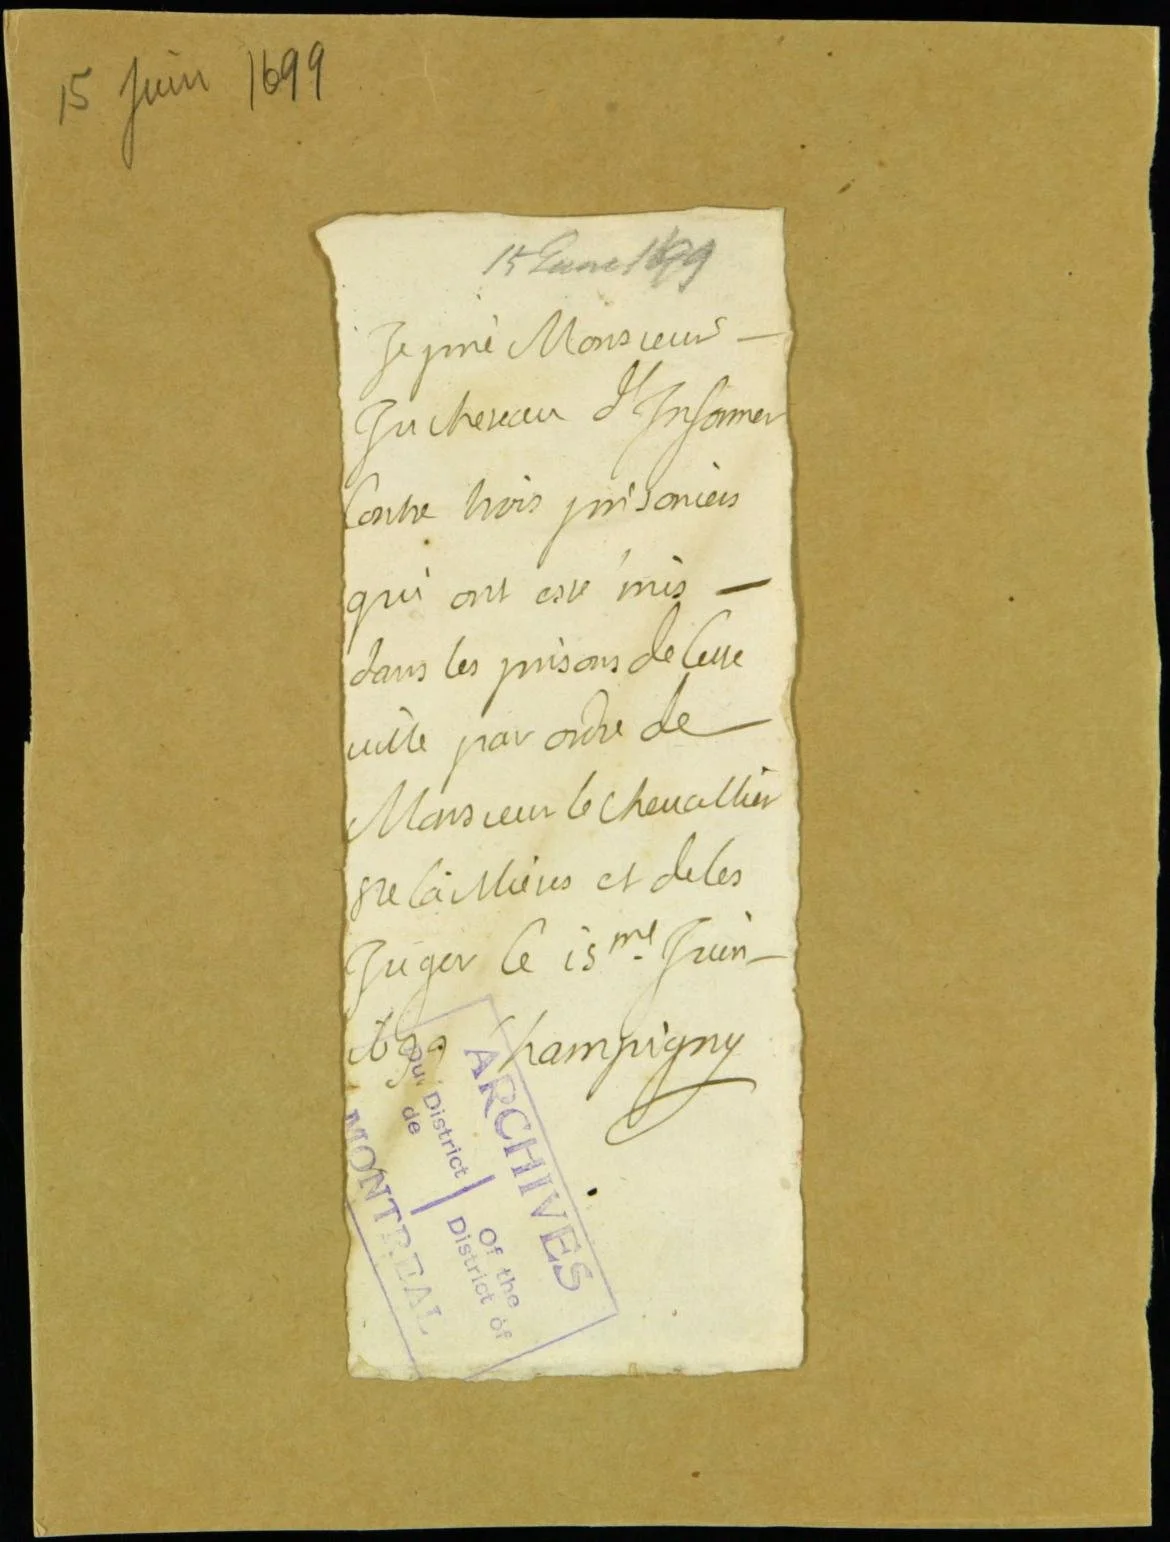 15 Juin 1699
15 June 1699
Je prie Monsieur —
Juchereau d'Informer
Contre trois prisoniers
qui ont esté mis —
dans les prisons de Cette
ville par ordre de —
Monsieur le cheuallier
de Caillieres et de les
Juger le 15me. Juin —
1699 Champigny
ARCHIVES
Du District
de
Of the
District of
MONTREAL